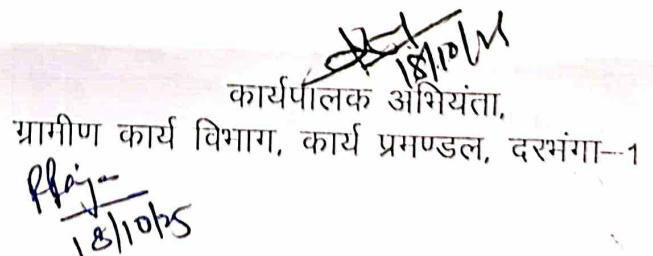 18/10/25
कार्यपालक अभियंता,
ग्रामीण कार्य विभाग, कार्य प्रमण्डल, दरभंगा—1
18/10/25